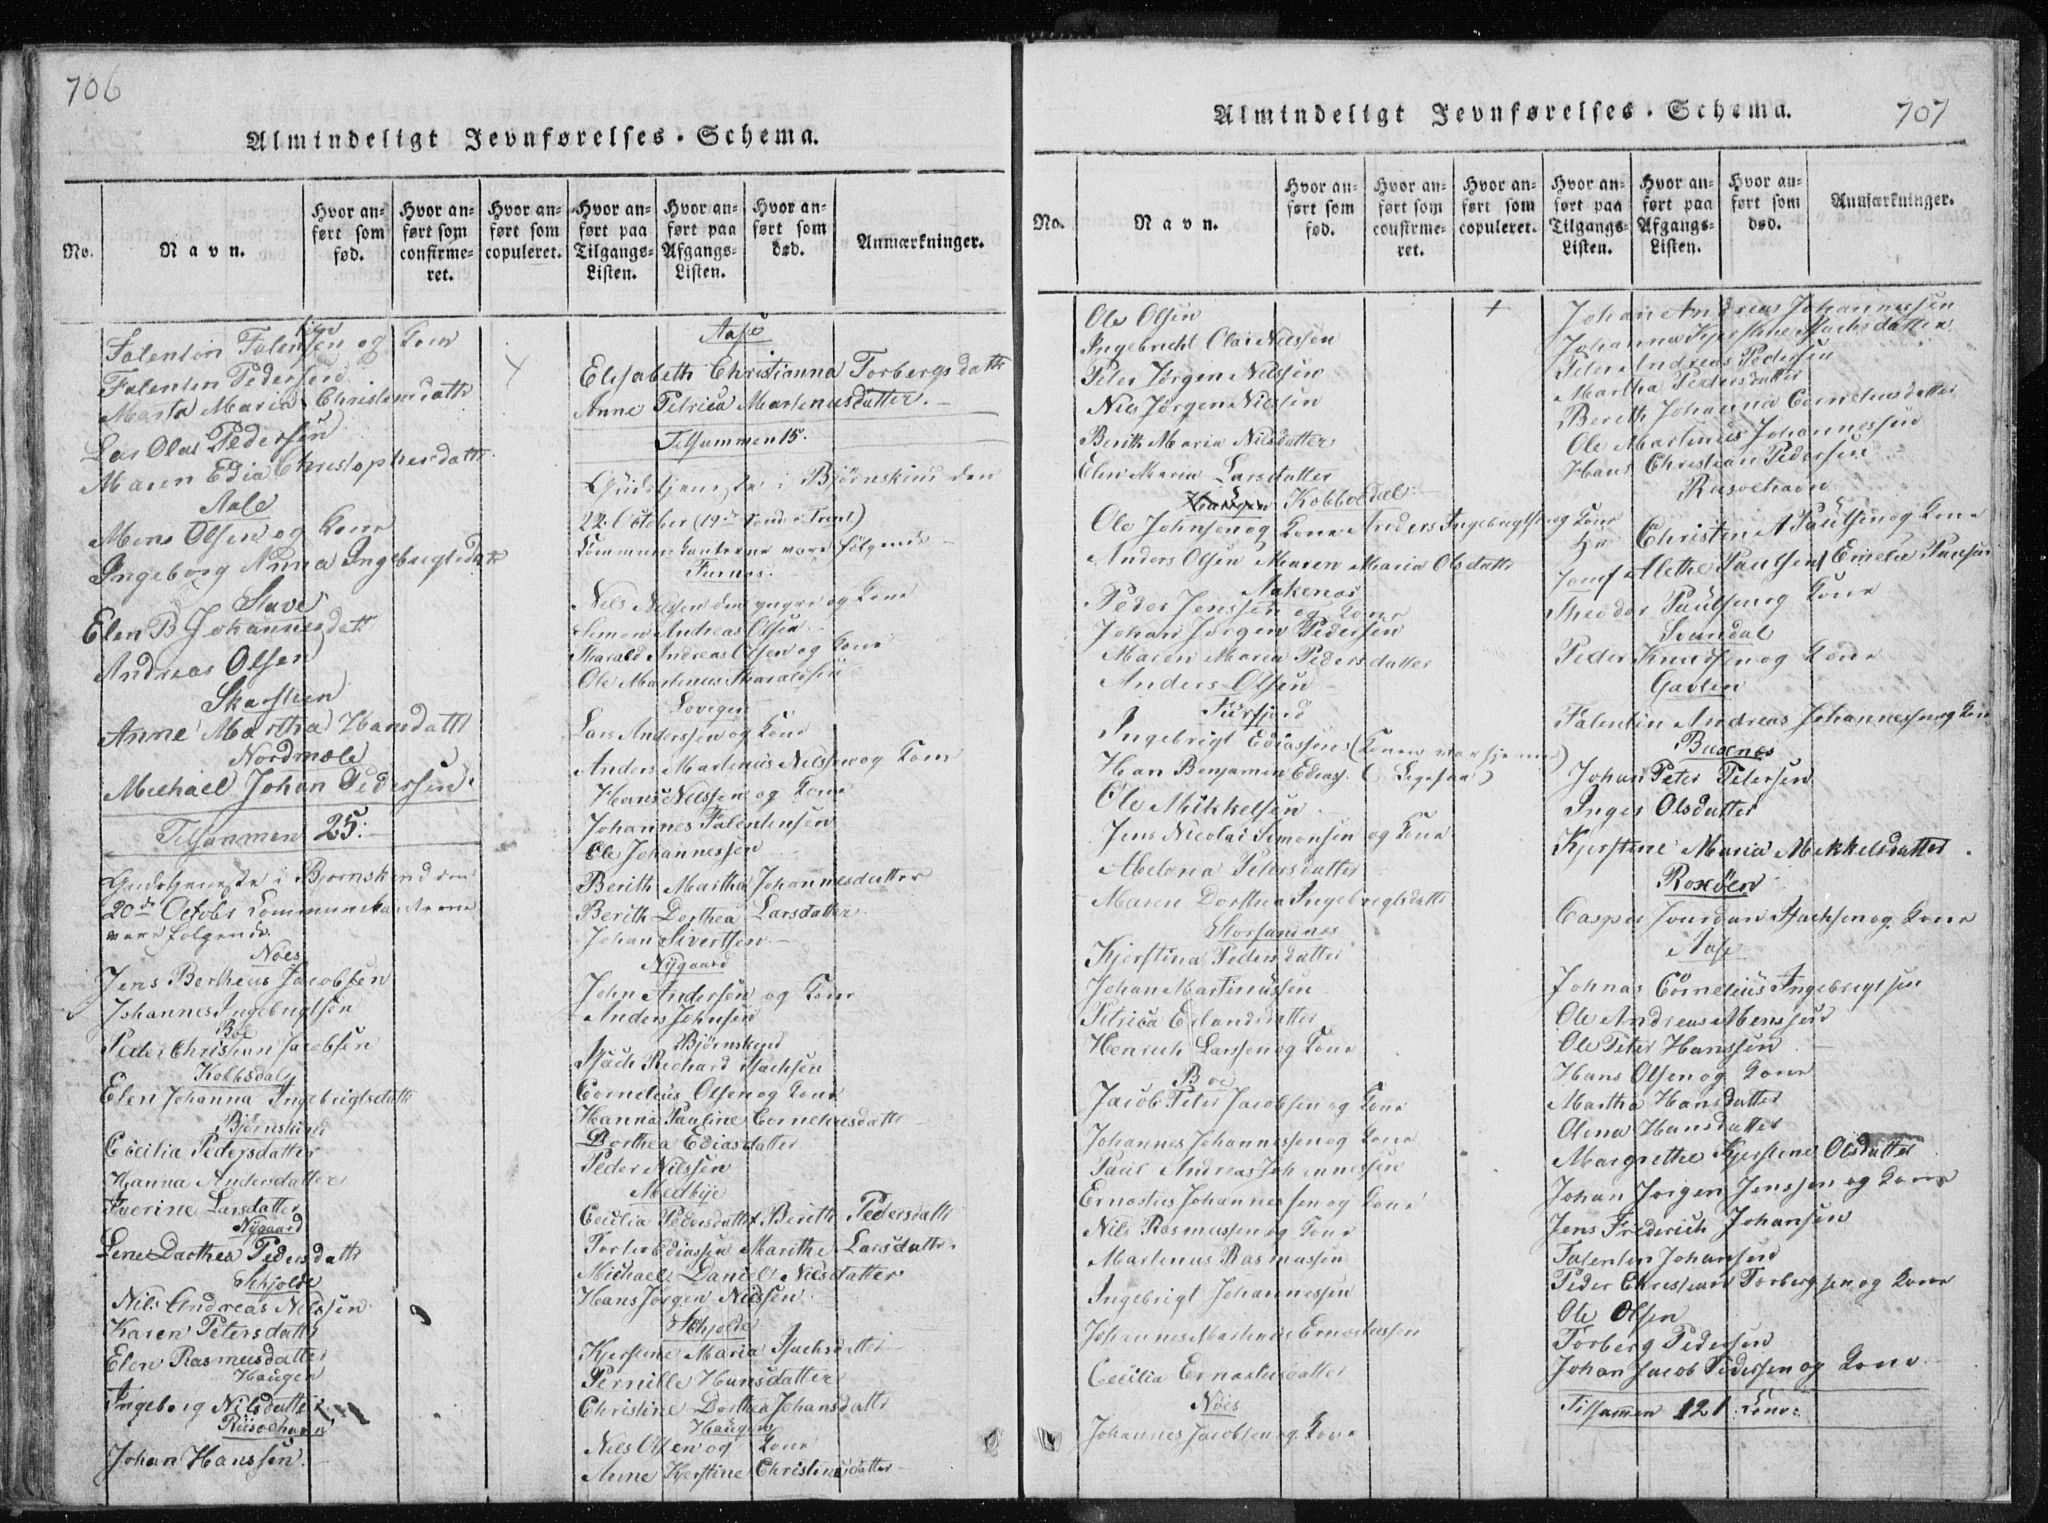 706
Almindeligt Jevnførelses-Schema.
No.
Navn.
Hvor an-
ført som
fød.
Hvor an-
ført som
confirme-
ret.
Hvor an-
ført som
copuleret.
Hvor an-
ført paa
Tilgangs-
Listen.
Hvor an-
ført paa
Afgangs-
Listen.
Hvor an-
ført som
død.
Anmærkninger.
Falentin Falensen og Kone
Falentin Pedersen
Marta Maria Christensdatt
Lars Olai Pedersen
Maren Edia Christophersdatt
Aase
Mons Olsen og Kone
Ingeborg Anna Ingebrigtsdatt
Stave
Elen B Johannesdatt
Andreas Olsen
Skarstien
Anne Martha Hansdatt
Nordmæle
Michael Johan Pedersen
Tilsammen 25.
Gudstjeneste i Bjørnskind den
20de Octobr Communikanterne
vare følgende
Nöes
Jens Bertheus Jacobsen
Johannes Ingebrigtsen
Böe
Peder Christian Jacobsen
Kobbedal
Elen Johanna Ingebrigtsdatt
Bjørnskind
Cecilia Pedersdatter
Hanna Andersdatter
Iverine Larsdatter
Nÿgaard
Lene Dorthea Pedersdatt
Schjolde
Nils Andreas Nilssen
Karen Petersdatt
Elen Rasmusdatter
Haugen
Ingeborg Nilsdatter
Risøehavn
Johan Hanssen
Aase
Elisabeth Christianna Torbergsdatt
Anne Petrica Martenusdatter.
Tilsammen 15.
Gudstjeneste i Bjørnskind den
22. October (19de Sønd. e. Trint)
Communikanterne vare følgende
Furnes.
Nils Nilsen den yngre og Kone
Simon Andreas Olsen
Harald Andreas Olsen og Kone
Ole Martinus Haraldsen
Lovigen
Lars Anderssen og Kone
Anders Martinus Nilssen og Kone
Hans Nilssen og Kone
Johannes Falentinsen
Ole Johannessen
Berith Martha Johannesdatter
Berith Dorthea Larsdatter
Johan Sivertsen
Nÿgaard
John Andersen og Kone
Anders Johnsen
Bjørnskind
Isach Richard Isachsen
Cornelius Olsen og Kone
Hanna Pauline Corneliusdatt
Dorthea Ediasdatter
Peder Nilssen
Medbÿe
Cecilia Pedersdatt Berith Pedersdatt
Peder Ediassen Marithe Larsdatter
Michael Daniel Nilsdatter
Hans Jörgen Nilssen
Schjolde
Kjerstine Maria Isachsdatter
Pernille Hansdatter
Christine Dorthea Johansdatt
Haugen
Nils Olsen og Kone
Anne Kjerstine Christensdatter
707
Almindeligt Jevnførelses-Schema.
No.
Navn.
Hvor an-
ført som
fød.
Hvor an-
ført som
confirme-
ret.
Hvor an-
ført som
copuleret.
Hvor an-
ført paa
Tilgangs-
Listen.
Hvor an-
ført paa
Afgangs-
Listen.
Hvor an-
ført som
død.
Anmærkninger.
Ole Olsen
Ingebricht Olai Nilssen
Peter Jørgen Nilssen
Nils Jørgen Nilssen
Berith Maria Nilsdatter
Elen Maria Larsdatter
Haugen Kobbedal
Ole Johnsen og Kone Anders Ingebrigtsen og Kone
Anders Olsen Maren Maria Olsdatt
Aakenes
Peder Jenssen og Kone
Johan Jörgen Pedersen
Maren Maria Pedersdatter
Anders Olsen
Fiirfjord
Ingebrigt Ediassen (Konen var hjemme)
Han Benjamin Edias.
Ole Mikkelsen
Jens Nicolai Simonsen og Kone
Abelona Petersdatter
Maren Dorthea Ingebrigtsdatt
Storsandnes
Kjerstina Pedersdatter
Johan Martinussen
Petrica Erlandsdatter
Henrich Larssen og Kone
Boe
Jacob Peter Jacobsen og Kone
Johannes Johannessen og Kone
Paul Andreas Johannessen
Ernestus Johannessen og Kone
Nils Rasmussen og Kone
Martenus Rasmussen
Ingebrigt Johannessen
Johannes Martenus Ernestussen
Cecilia Ernestusdatter
Nöes
Johannes Jacobsen og Kone
Johan Andreas Johannessen
Johanna Kjerstine Isachsdatter
Peter Andreas Pedersen
Martha Pedersdatter
Berith Johanna Corneliusdatter
Ole Martinus Johannessen
Hans Christian Pedersen
Risøehavn
Hr Christen A Paulsen og Kone
Jomf Alethe Paulsen Emelie Paulsen
Theodor Paulsen og Kone
Svandal
Peder Knudsen og Kone
Gavlen
Falentin Andreas Johannessen og Kone
Buxnæs
Johan Peter Petersen
Inger Olsdatter
Kjerstine Maria Mikkelsdatter
Roxöen
Casper Jourdan Isachsen og Kone
Aase
Johnas Cornelius Ingebrigtsen
Ole Andreas Monssen
Ole Peter Hanssen
Hans Olsen og Kone
Martha Hansdatter
Olena Hansdatter
Margrethe Kjerstine Olsdatter
Johan Jørgen Jenssen og Kone
Jens Frederich Johansen
Falentin Johansen
Peder Christian Torbergsen og Kone
Ole Olsen
Torberg Pedersen
Johan Jacob Pedersen og Kone
Tilsammen 121